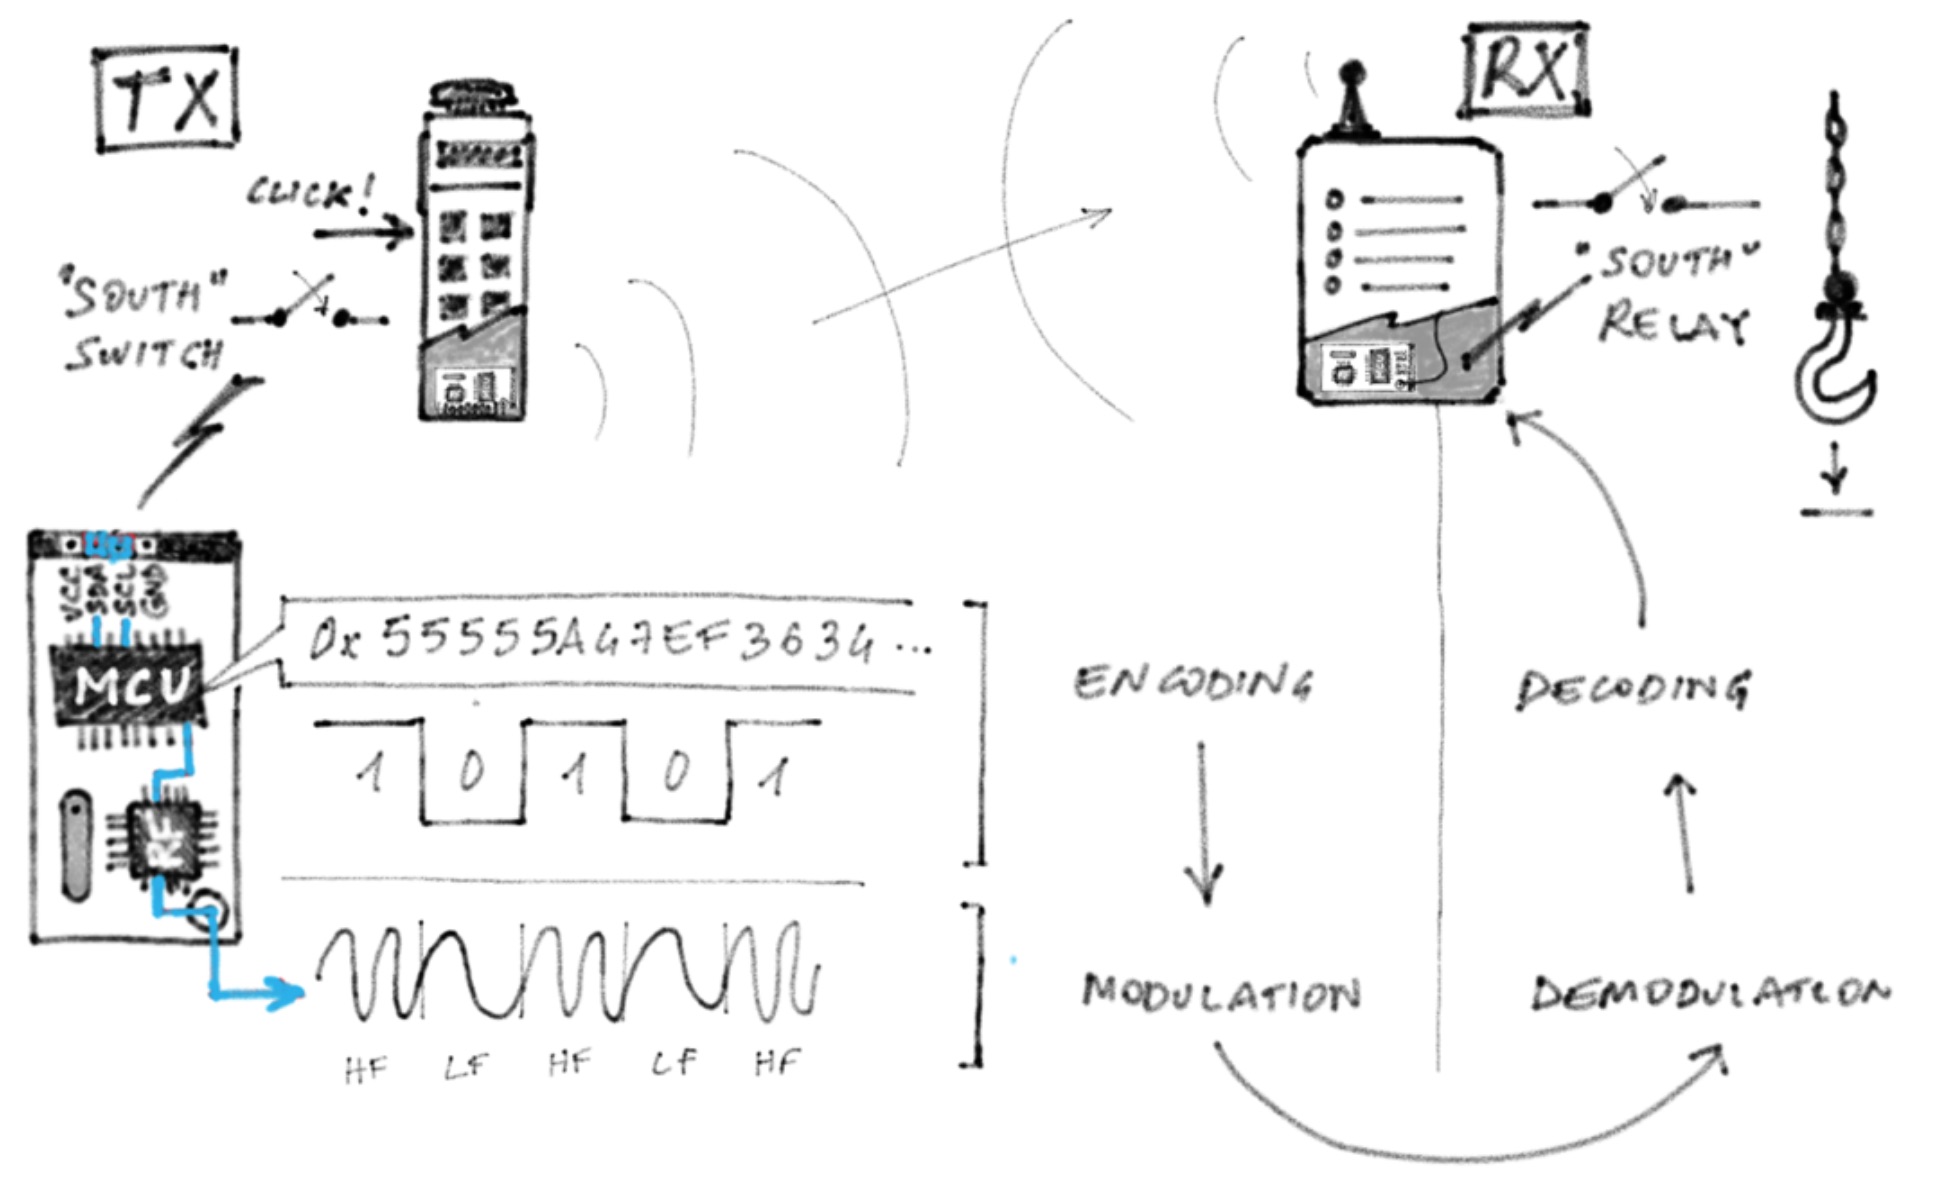 TX
RX
CLICK!
"SOUTH"
SWITCH
"SOUTH"
RELAY
VCC
SDA
SCL
GND
MCU
RF
0x 55555A47EF3634 ...
1 0 1 0 1
HF LF HF LF HF
ENCODING
DECODING
MODULATION
DEMODULATION